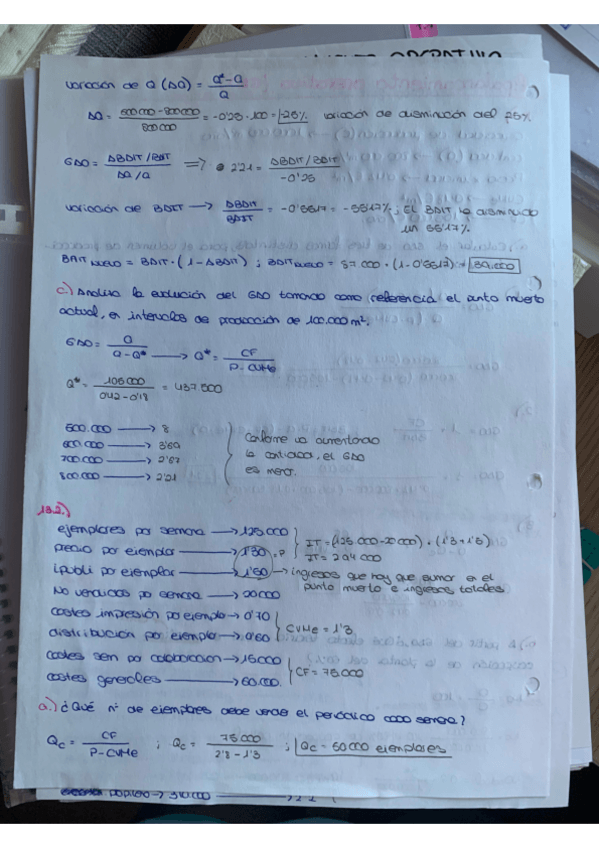 variación de Q (ΔQ) = Q*-Q / Q
ΔQ = 600000 - 800000 / 800000 = -0'25 · 100 = -25% variación de disminución del 25%
GAO = ΔBAIT/BAIT / ΔQ/Q => 2'21 = ΔBAIT/BAIT / -0'25
variación de BAIT → ΔBAIT / BAIT = -0'5517 = -55'17%; El BAIT, ha disminuido
un 55'17%
BAIT NUEVO = BAIT · (1-ΔBAIT) ; BAIT NUEVO = 87.000 · (1-0'5517) = 39.000
c.) Analiza la evolución del GAO tomando como referencia el punto muerto
actual, en intervalos de producción de 100.000 m².
GAO = Q / Q-Q* → Q* = CF / P-CVMe
Q* = 105000 / 0'42-0'18 = 437500
500.000 → 8
600.000 → 3'69
700.000 → 2'67
800.000 → 2'21
Conforme va aumentando
la cantidad, el GAO
es menor.
13.2.)
ejemplares por semana → 125.000
precio por ejemplar → 1'30 = P
ipubli por ejemplar → 1'50 → ingresos que hay que sumar en el
punto muerto e ingresos totales
IT = (125.000-20000) · (1'3+1'5)
IT = 294000
No vendidos por semana → 20000
costes impresión por ejemplar → 0'70
distribución por ejemplar → 0'60
CVMe = 1'3
costes sem por colaboración → 15000
costes generales → 60.000
CF = 75000
a.) ¿Qué nº de ejemplares debe vender el periódico cada semana?
Qc = CF / P-CVMe ; Qc = 75000 / 2'8-1'3 ; Qc = 50000 ejemplares